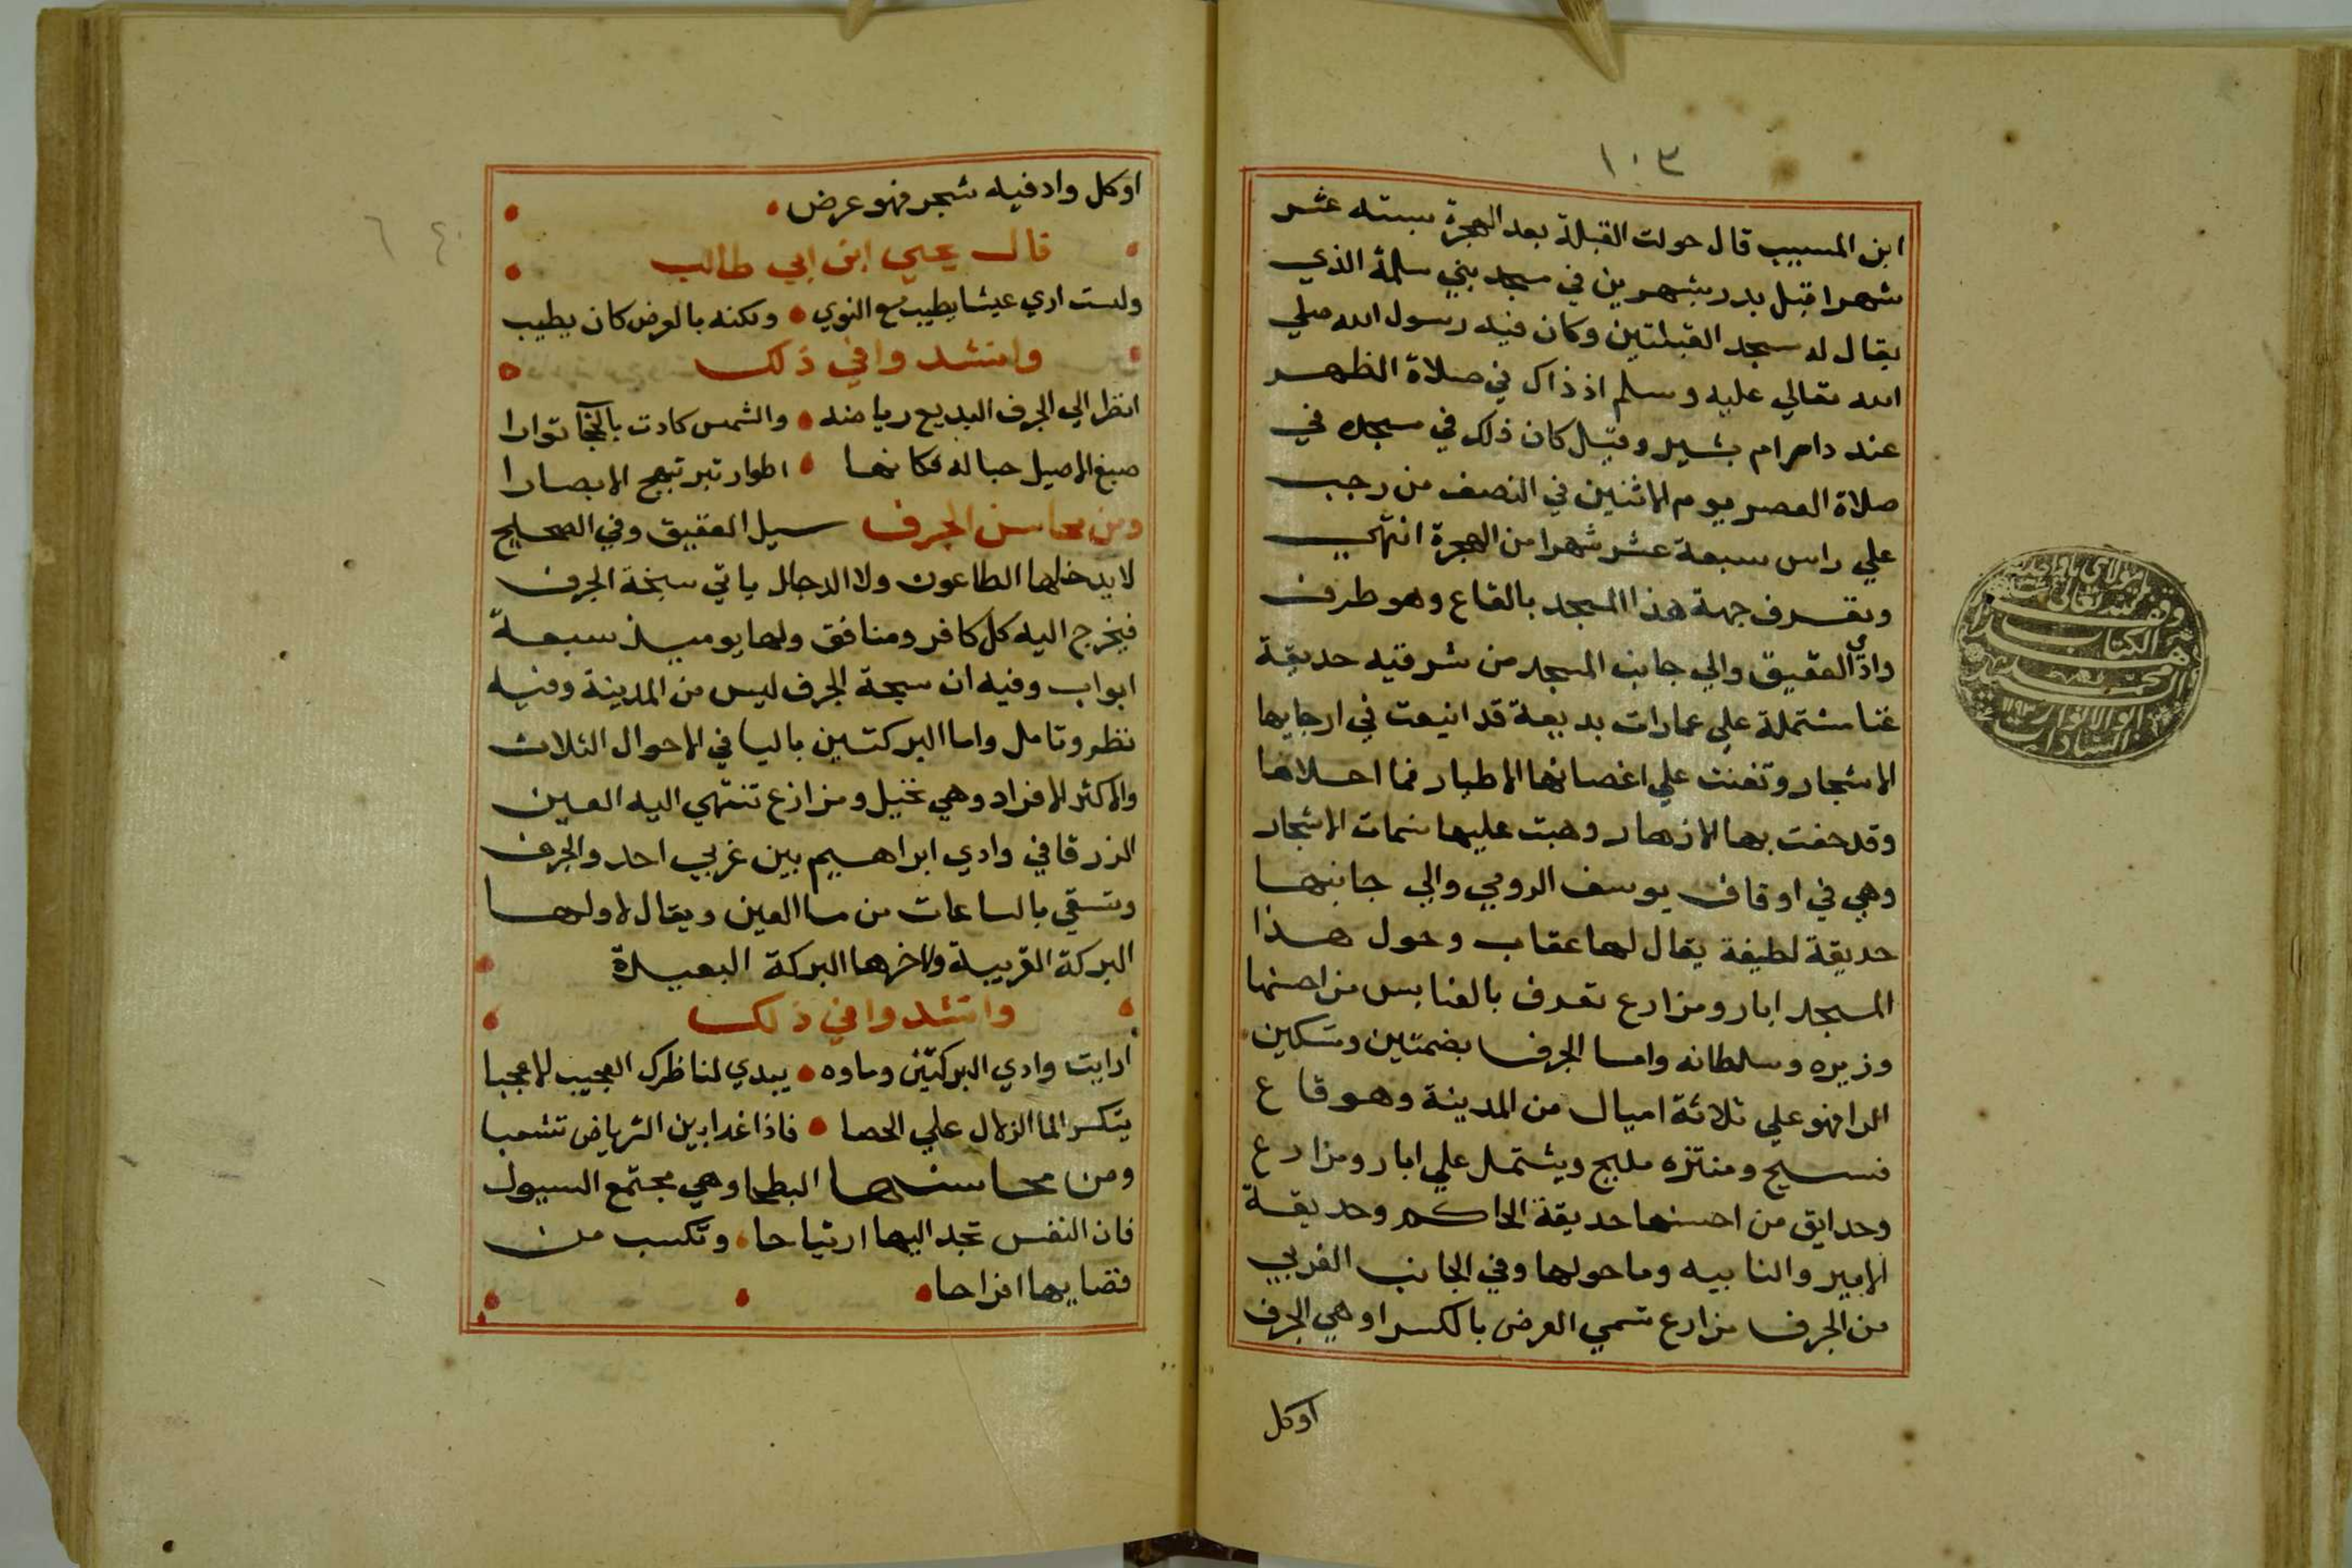 ١٠٣
ابن المسيب قال حولت القبلة بعد الهجرة بستة عشر
شهرا قبل بدر بشهرين في مسجد بني سلمة الذي
يقال له مسجد القبلتين وكان فيه رسول الله صلي
الله تعالي عليه وسلم اذ ذاك في صلاة الظهر
عند دام ام بشير وقيل كان ذلك في مسجده في
صلاة العصر يوم الاثنين في النصف من رجب
علي راس سبعة عشر شهرا من الهجرة انتهي
وتعرف جهة هذا المسجد بالقاع وهو طرف
وادي العقيق والي جانب المسجد من شرقيه حديقة
غنا مشتملة علي عمارات بديعة قد انيعت في ارجايها
الاشجار وتغنت علي اغصانها الاطيار فما احلاها
وقد حفت بها الازهار وهبت عليها نسمات الاشجار
وهي في اوقاف يوسف الرومي والي جانبها
حديقة لطيفة يقال لها عقاب وحول هذا
المسجد ابار ومزارع تعرف بالعنابس من احسنها
وزيره وسلطانه واما الجرف بضمتين وتسكين
الرا فهو علي ثلاثة اميال من المدينة وهو قاع
فسيح ومنتزه مليح ويشتمل علي ابار ومزارع
وحدايق من احسنها حديقة الحاكم وحديقة
الامير والنابيه وما حولها وفي الجانب الغربي
من الجرف مزارع تسمي العرض بالكسر او هي الجرف
اوكل
الكتاب
السادات
اوكل واد فيه شجر فهو عرض
قال يحيي ابن ابي طالب
ولست اري عيشا يطيب مع النوي • ولكنه بالعرض كان يطيب
وانشدوا في ذلك
انظر الي الجرف البديع رياضه • والشمس كادت بالتوارا
صبغ الاصيل جباله فكانها • اطوار تبر تبهج الابصارا
ومن محاسن الجرف سيل العقيق وفي الصحيح
لا يدخلها الطاعون ولا الدجال ياتي سبخة الجرف
فيخرج اليه كل كافر ومنافق ولها يوميذ سبعة
ابواب وفيه ان سبحة الجرف ليس من المدينة وفيه
نظر وتامل واما البركتين باليا في الاحوال الثلاث
والاكثر الافراد وهي نخيل ومزارع تنتهي اليه العين
الزرقا في وادي ابراهيم بين غربي احد والجرف
وتسقي بالساعات من ما العين ويقال لاولها
البركة القريبة ولاخرها البركة البعيدة
وانشدوا في ذلك
ارايت وادي البركتين وماوه • يبدي لناظرك العجيب الاعجبا
يتكسر الما الزلال علي الحصا • فاذا غدا بين الرياض تشعبا
ومن محاسنها البطحا وهي مجتمع السيول
فان النفس تجد اليها ارتياحا، وتكسب من
فضايها افراحا